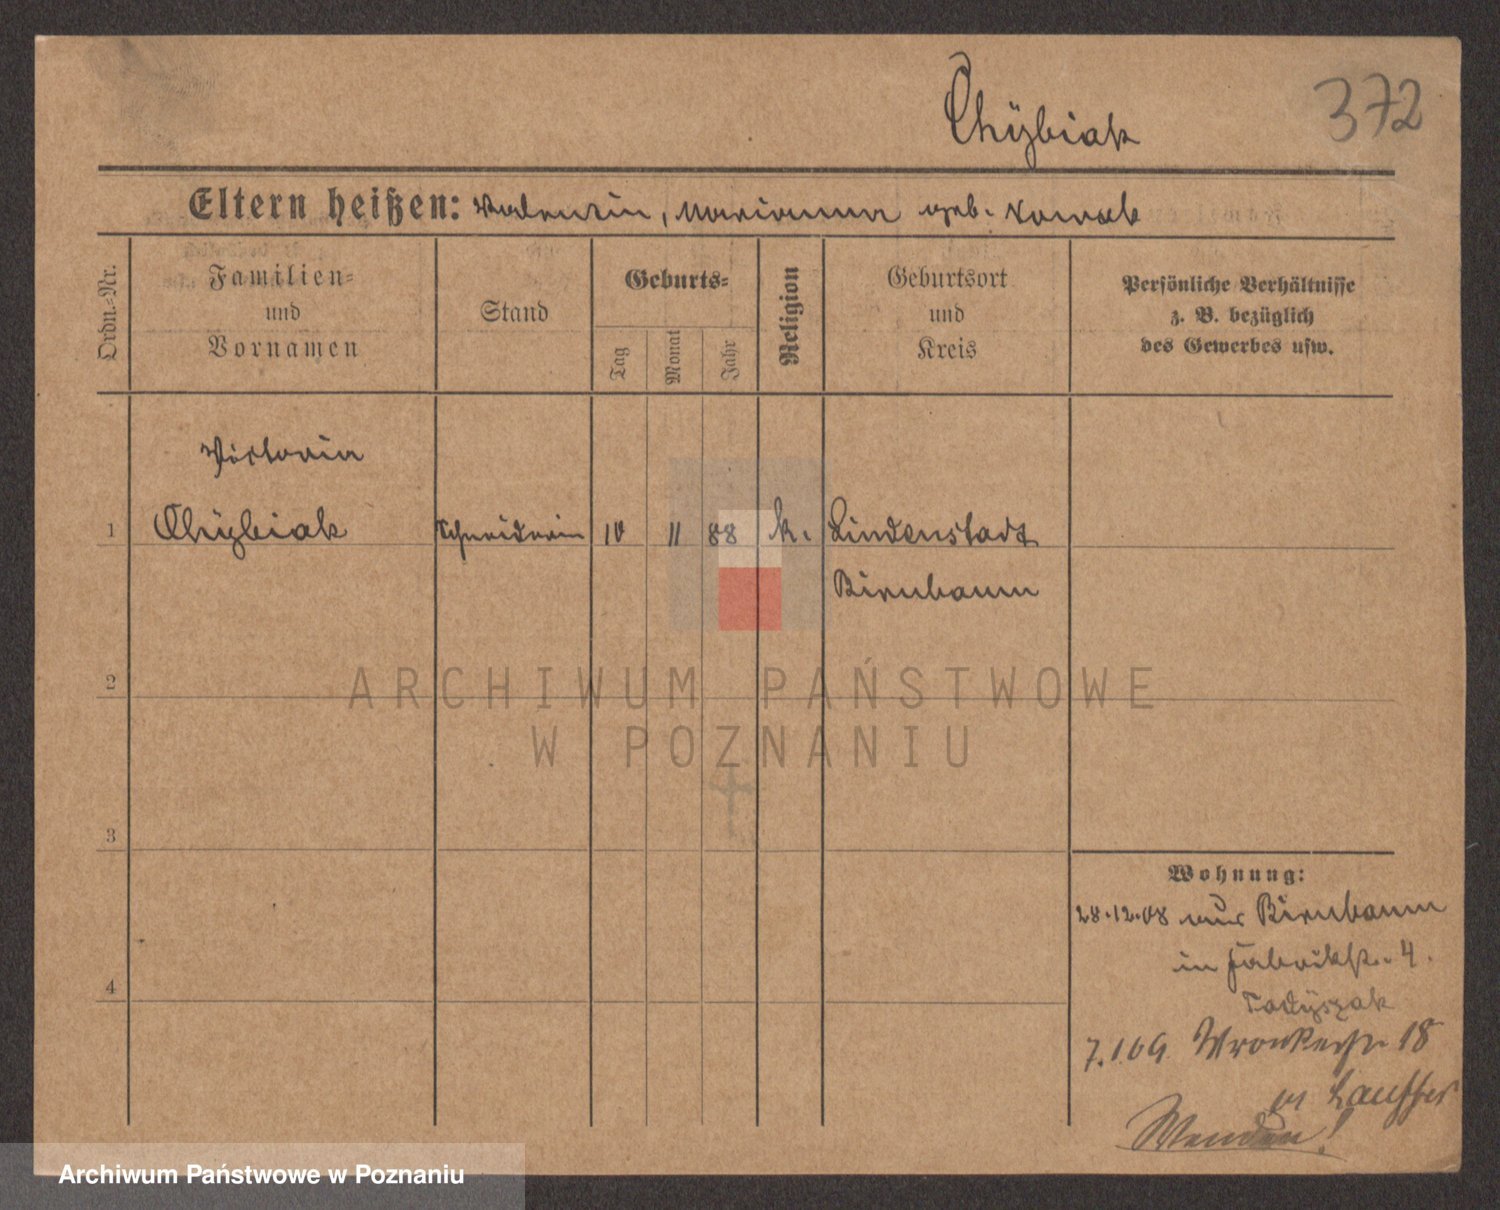 Chÿbiak
372
Eltern heißen: Valentin, Marianna geb. Nowak
Ordn.-Nr.
Familien-
und
Vornamen
Stand
Geburts-
Tag
Monat
Jahr
Religion
Geburtsort
und
Kreis
Persönliche Verhältnisse
z. B. bezüglich
des Gewerbes usw.
Victoria
1 Chÿbiak Schneiderin 10 11 88 k. Lindenstadt
Birnbaum
2
3
4
Wohnung:
28.12.08 aus Birnbaum
in Fabrikstr. 4.
Tadÿszak
7.1.09 Wronkerstr 18
Wenden!
ARCHIWUM PAŃSTWOWE
W POZNANIU
Archiwum Państwowe w Poznaniu